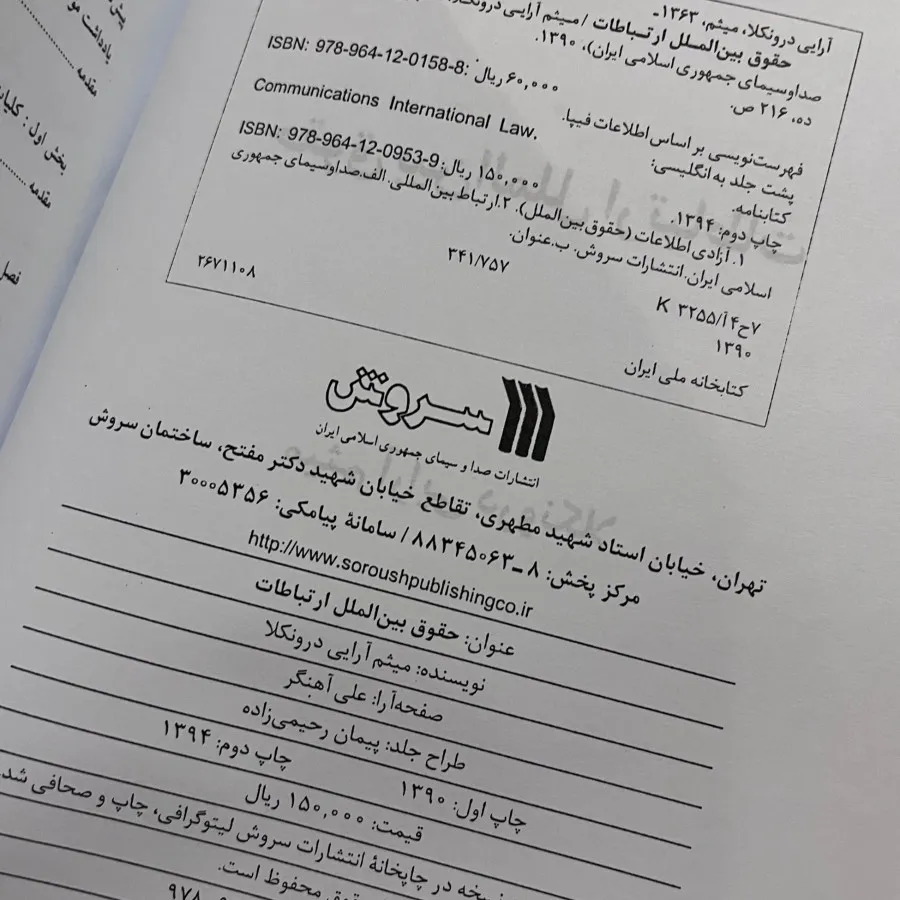 آرایی درونکلا، میثم، ۱۳۶۳ـ
حقوق بین‌المـلل ارتـباطات / میثم آرایی درونکلا.
صداوسیمای جمهوری اسلامی ایران)، ۱۳۹۰.
ده، ۲۱۶ ص.
ISBN: 978-964-12-0158-8: ۶۰,۰۰۰ ریال
فهرست‌نویسی بر اساس اطلاعات فیپا.
پشت جلد به انگلیسی: Communications International Law.
کتابنامه.
چاپ دوم: ۱۳۹۴. ISBN: 978-964-12-0953-9: ۱۵۰,۰۰۰ ریال
۱. آزادی اطلاعات (حقوق بین‌الملل). ۲. ارتباط بین‌المللی. الف. صداوسیمای جمهوری
اسلامی ایران. انتشارات سروش. ب. عنوان.
۳۴۱/۷۵۷
K ۳۲۵۵/آ۴ح۷
۱۳۹۰
۲۶۷۱۱۰۸
کتابخانه ملی ایران
سروش
انتشارات صدا و سیمای جمهوری اسلامی ایران
تهران، خیابان استاد شهید مطهری، تقاطع خیابان شهید دکتر مفتح، ساختمان سروش
مرکز پخش: ۸ ـ ۸۸۳۴۵۰۶۳ / سامانهٔ پیامکی: ۳۰۰۰۵۳۵۶
http://www.soroushpublishingco.ir
عنوان: حقوق بین‌الملل ارتباطات
نویسنده: میثم آرایی درونکلا
صفحه‌آرا: علی آهنگر
طراح جلد: پیمان رحیمی‌زاده
چاپ اول: ۱۳۹۰ چاپ دوم: ۱۳۹۴
قیمت: ۱۵۰,۰۰۰ ریال
نسخه در چاپخانهٔ انتشارات سروش لیتوگرافی، چاپ و صحافی شد
محفوظ است.
۹۷۸
یادداشت
مقدمه
بخش اول: کلیات
مقدمه
فصل